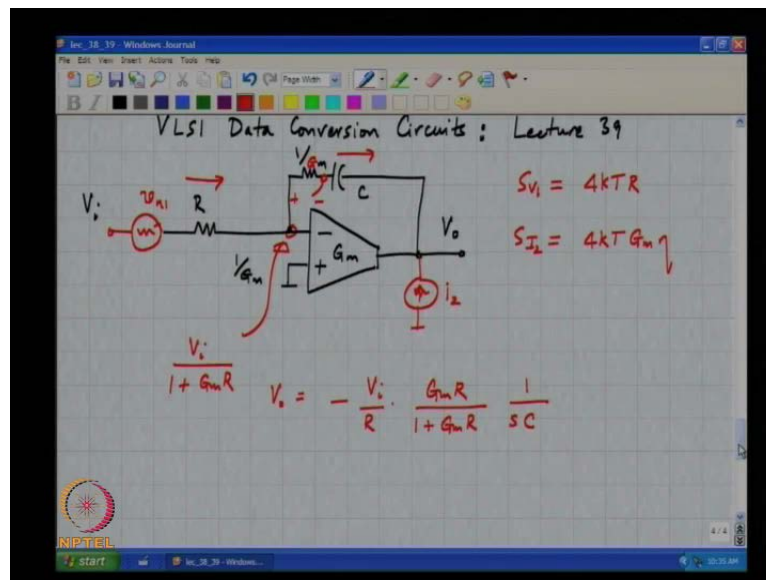 lec_38_39 - Windows Journal
File Edit View Insert Actions Tools Help
Page Width
B I
VLSI Data Conversion Circuits : Lecture 39
1/Gm
C
Vi
vn1
R
+ -
SV1 = 4kTR
SI2 = 4kTGm η
1/Gm
-
+
Gm
Vo
i2
Vi / (1 + GmR)
Vo = - Vi/R · GmR/(1 + GmR) 1/sC
4/4
NPTEL
start
lec_38_39 - Windows...
10:35 AM